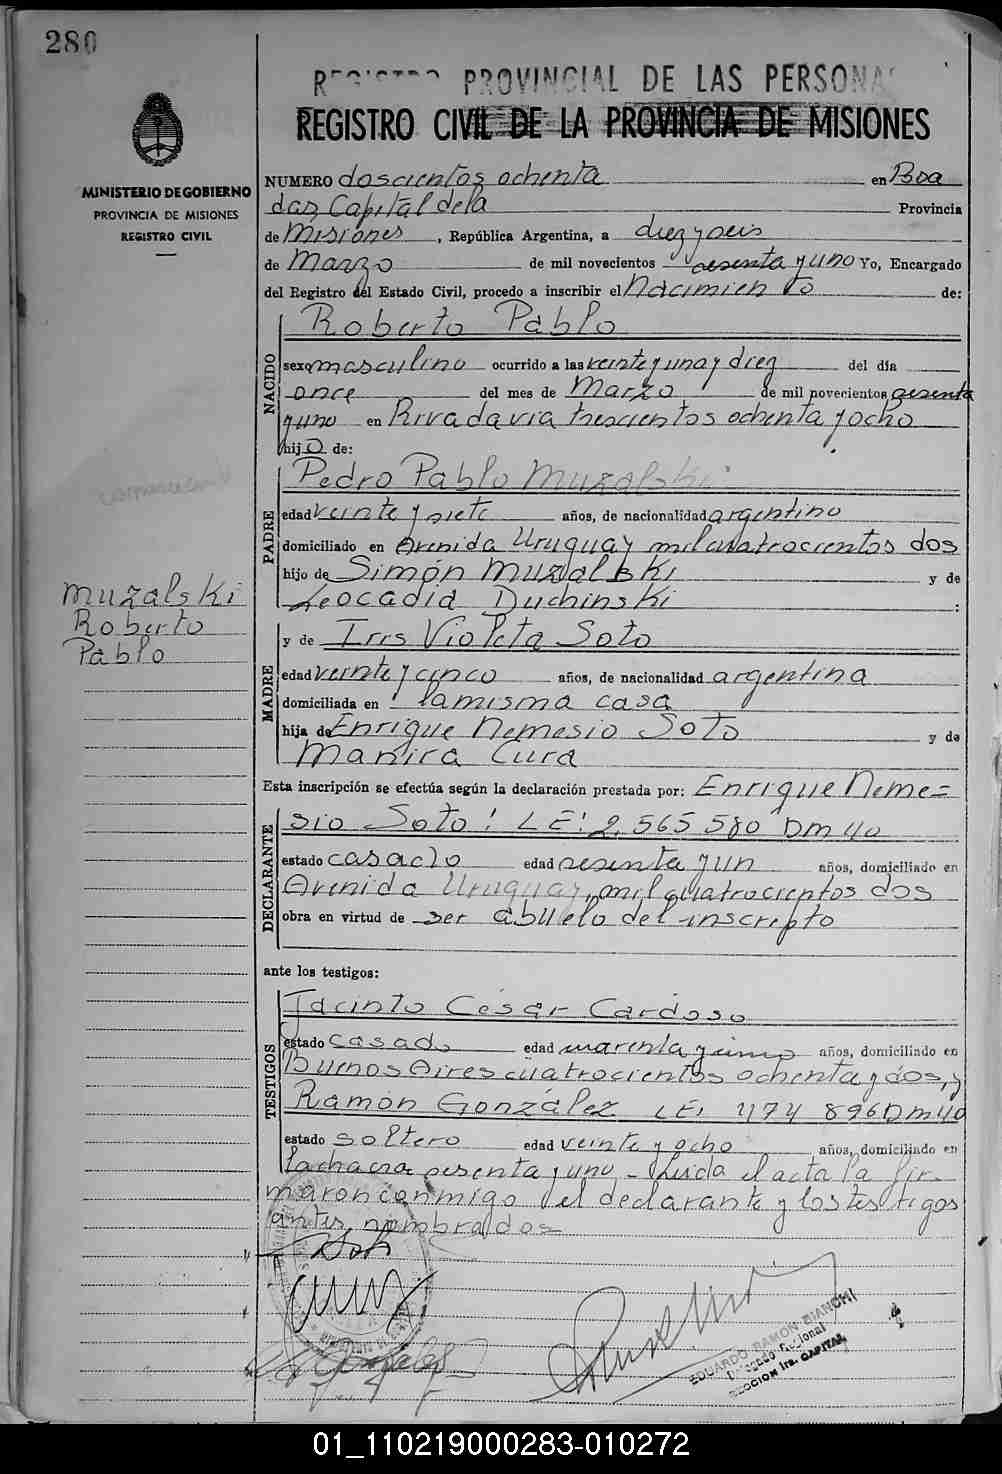 280
REGISTRO PROVINCIAL DE LAS PERSONAS
REGISTRO CIVIL DE LA PROVINCIA DE MISIONES
MINISTERIO DE GOBIERNO
PROVINCIA DE MISIONES
REGISTRO CIVIL
NUMERO doscientos ochenta en Posa
das, Capital de la Provincia
de Misiones, República Argentina, a diez y seis
de Marzo de mil novecientos sesenta y uno Yo, Encargado
del Registro del Estado Civil, procedo a inscribir el Nacimiento de:
NACIDO
Roberto Pablo
sexo masculino ocurrido a las veinte y una y diez del día
once del mes de Marzo de mil novecientos sesenta
y uno en Rivadavia trescientos ochenta y ocho
hijo de:
PADRE
Pedro Pablo Muzalski
edad veinte y siete años, de nacionalidad argentino
domiciliado en Avenida Uruguay mil cuatrocientos dos
hijo de Simón Muzalski y de
Leocadia Duchinski :
Muzalski
Roberto
Pablo
MADRE
y de Iris Violeta Soto
edad veinte y cinco años, de nacionalidad argentina
domiciliada en la misma casa
hija de Enrique Nemesio Soto y de
Manira Cura
Esta inscripción se efectúa según la declaración prestada por: Enrique Neme=
DECLARANTE
sio Soto: LE: 2.565 580 Dm 40
estado casado edad sesenta y un años, domiciliado en
Avenida Uruguay, mil cuatrocientos dos
obra en virtud de ser abuelo del inscripto
ante los testigos:
TESTIGOS
Jacinto César Cardoso
estado casado edad cuarenta y cinco años, domiciliado en
Buenos Aires cuatrocientos ochenta y dos, y
Ramón González LE: 174 896 Dm 40
estado soltero edad veinte y ocho años, domiciliado en
la chacra sesenta y uno - Leida el acta la fir-
maron conmigo el declarante y los testigos
antes nombrados
Soto
R González
EDUARDO RAMON BIANCHI
Delegado Seccional
SECCION 1ra. CAPITAL
01_110219000283-010272